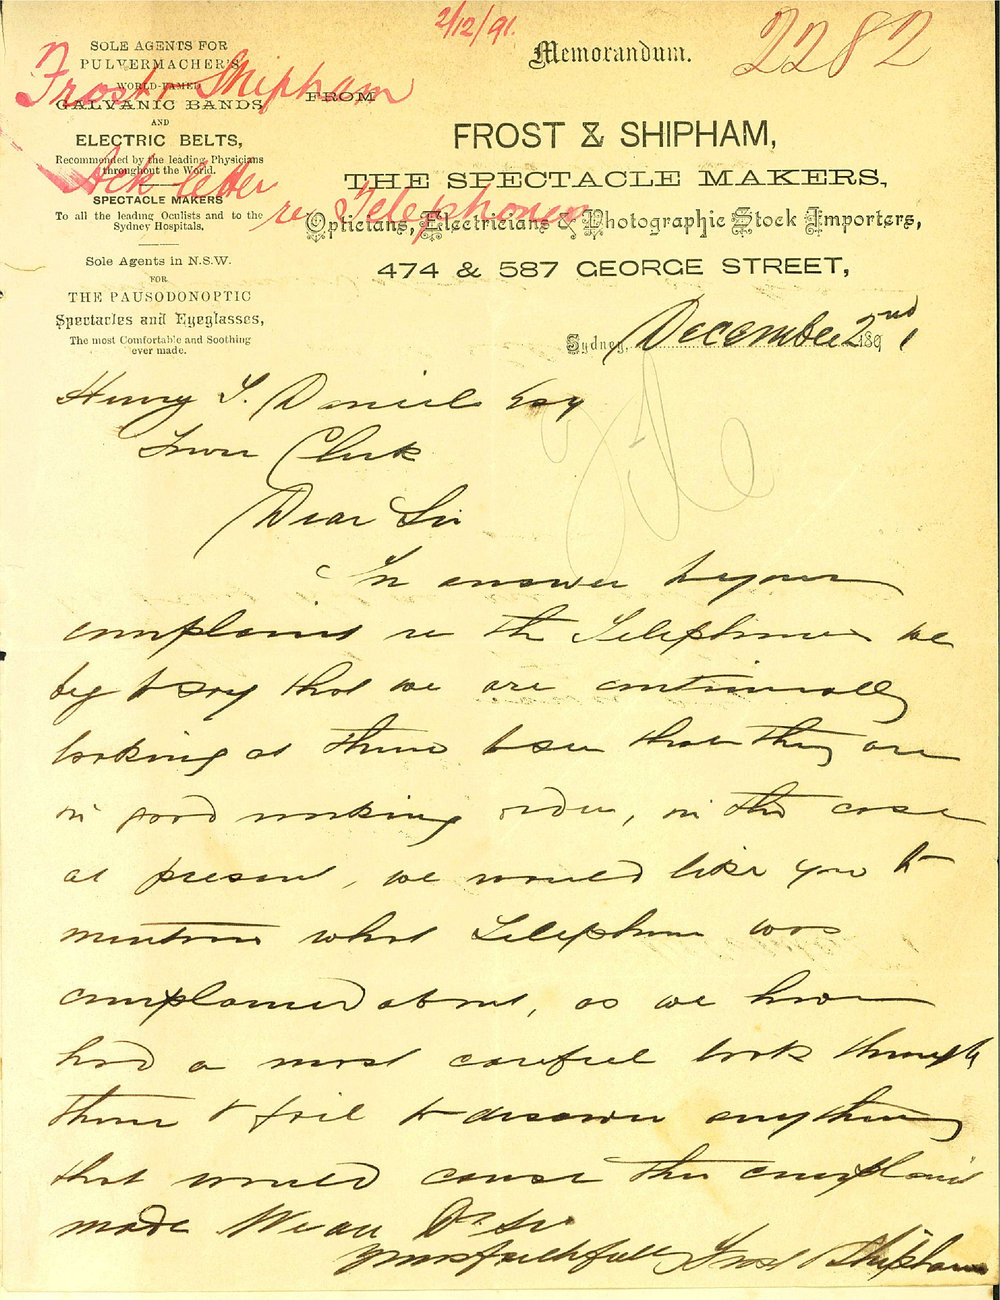 2/12/91.
2282
Frost & Shipham
Ack letter
re Telephones
SOLE AGENTS FOR
PULVERMACHER'S
WORLD-FAMED
GALVANIC BANDS
AND
ELECTRIC BELTS,
Recommended by the leading Physicians
throughout the World.
SPECTACLE MAKERS
To all the leading Oculists and to the
Sydney Hospitals.
Sole Agents in N.S.W.
FOR
THE PAUSODONOPTIC
Spectacles and Eyeglasses,
The most Comfortable and Soothing
ever made.
Memorandum.
FROM
FROST & SHIPHAM,
THE SPECTACLE MAKERS,
Opticians, Electricians & Photographic Stock Importers,
474 & 587 GEORGE STREET,
Sydney, December 2nd 1891
File
Henry S. Daniel Esq
Town Clerk
Dear Sir
In answer to your
complaint re the Telephones we
beg to say that we are continually
looking at them to see that they are
in good working order, in the case
at present, we would like you to
mention what Telephone was
complained about, as we have
had a most careful look through
them & fail to discover anything
that would cause the complaint
made We are Dr Sir
Yours faithfully Frost & Shipham